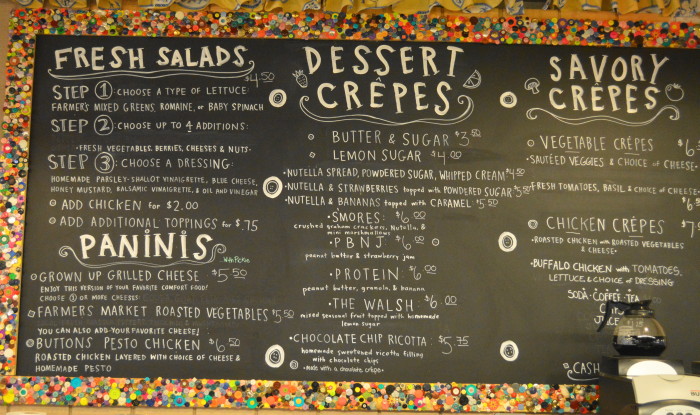 FRESH SALADS
$4.50
STEP 1: CHOOSE A TYPE OF LETTUCE:
FARMER'S MIXED GREENS, ROMAINE, or BABY SPINACH
STEP 2: CHOOSE UP TO 4 ADDITIONS:
•FRESH VEGETABLES, BERRIES, CHEESES & NUTS•
STEP 3: CHOOSE A DRESSING:
HOMEMADE PARSLEY-SHALLOT VINAIGRETTE, BLUE CHEESE,
HONEY MUSTARD, BALSAMIC VINAIGRETTE, & OIL AND VINEGAR
ADD CHICKEN for $2.00
ADD ADDITIONAL TOPPINGS for $.75
PANINIS
GROWN UP GRILLED CHEESE: $5.50
ENJOY THIS VERSION OF YOUR FAVORITE COMFORT FOOD!
CHOOSE 3 OR MORE CHEESES:
FARMERS MARKET ROASTED VEGETABLES $5.50
YOU CAN ALSO ADD YOUR FAVORITE CHEESE!
BUTTONS PESTO CHICKEN $6.50
ROASTED CHICKEN LAYERED WITH CHOICE OF CHEESE &
HOMEMADE PESTO
DESSERT
CRÊPES
BUTTER & SUGAR $3.50
LEMON SUGAR $4.00
•NUTELLA SPREAD, POWDERED SUGAR, WHIPPED CREAM $4.50
•NUTELLA & STRAWBERRIES topped with POWDERED SUGAR $5.50
•NUTELLA & BANANAS topped with CARAMEL $5.50
•SMORES: $6.00
crushed graham crackers, Nutella, &
mini marshmallows
•PBNJ: $6.00
peanut butter & strawberry jam
•PROTEIN: $6.00
peanut butter, granola, & banana
•THE WALSH: $6.00
mixed seasonal fruit topped with homemade
lemon sugar
•CHOCOLATE CHIP RICOTTA: $5.75
homemade sweetened ricotta filling
with chocolate chips
•made with a chocolate crêpe•
SAVORY
CRÊPES
VEGETABLE CRÊPES $6
•SAUTÉED VEGGIES & CHOICE of CHEESE•
FRESH TOMATOES, BASIL & CHOICE of CHEESE
$6
CHICKEN CRÊPES $7
•ROASTED CHICKEN with ROASTED VEGETABLES
& CHEESE•
•BUFFALO CHICKEN with TOMATOES,
LETTUCE, & CHOICE of DRESSING
SODA COFFEE TEA
JUICE
CASH